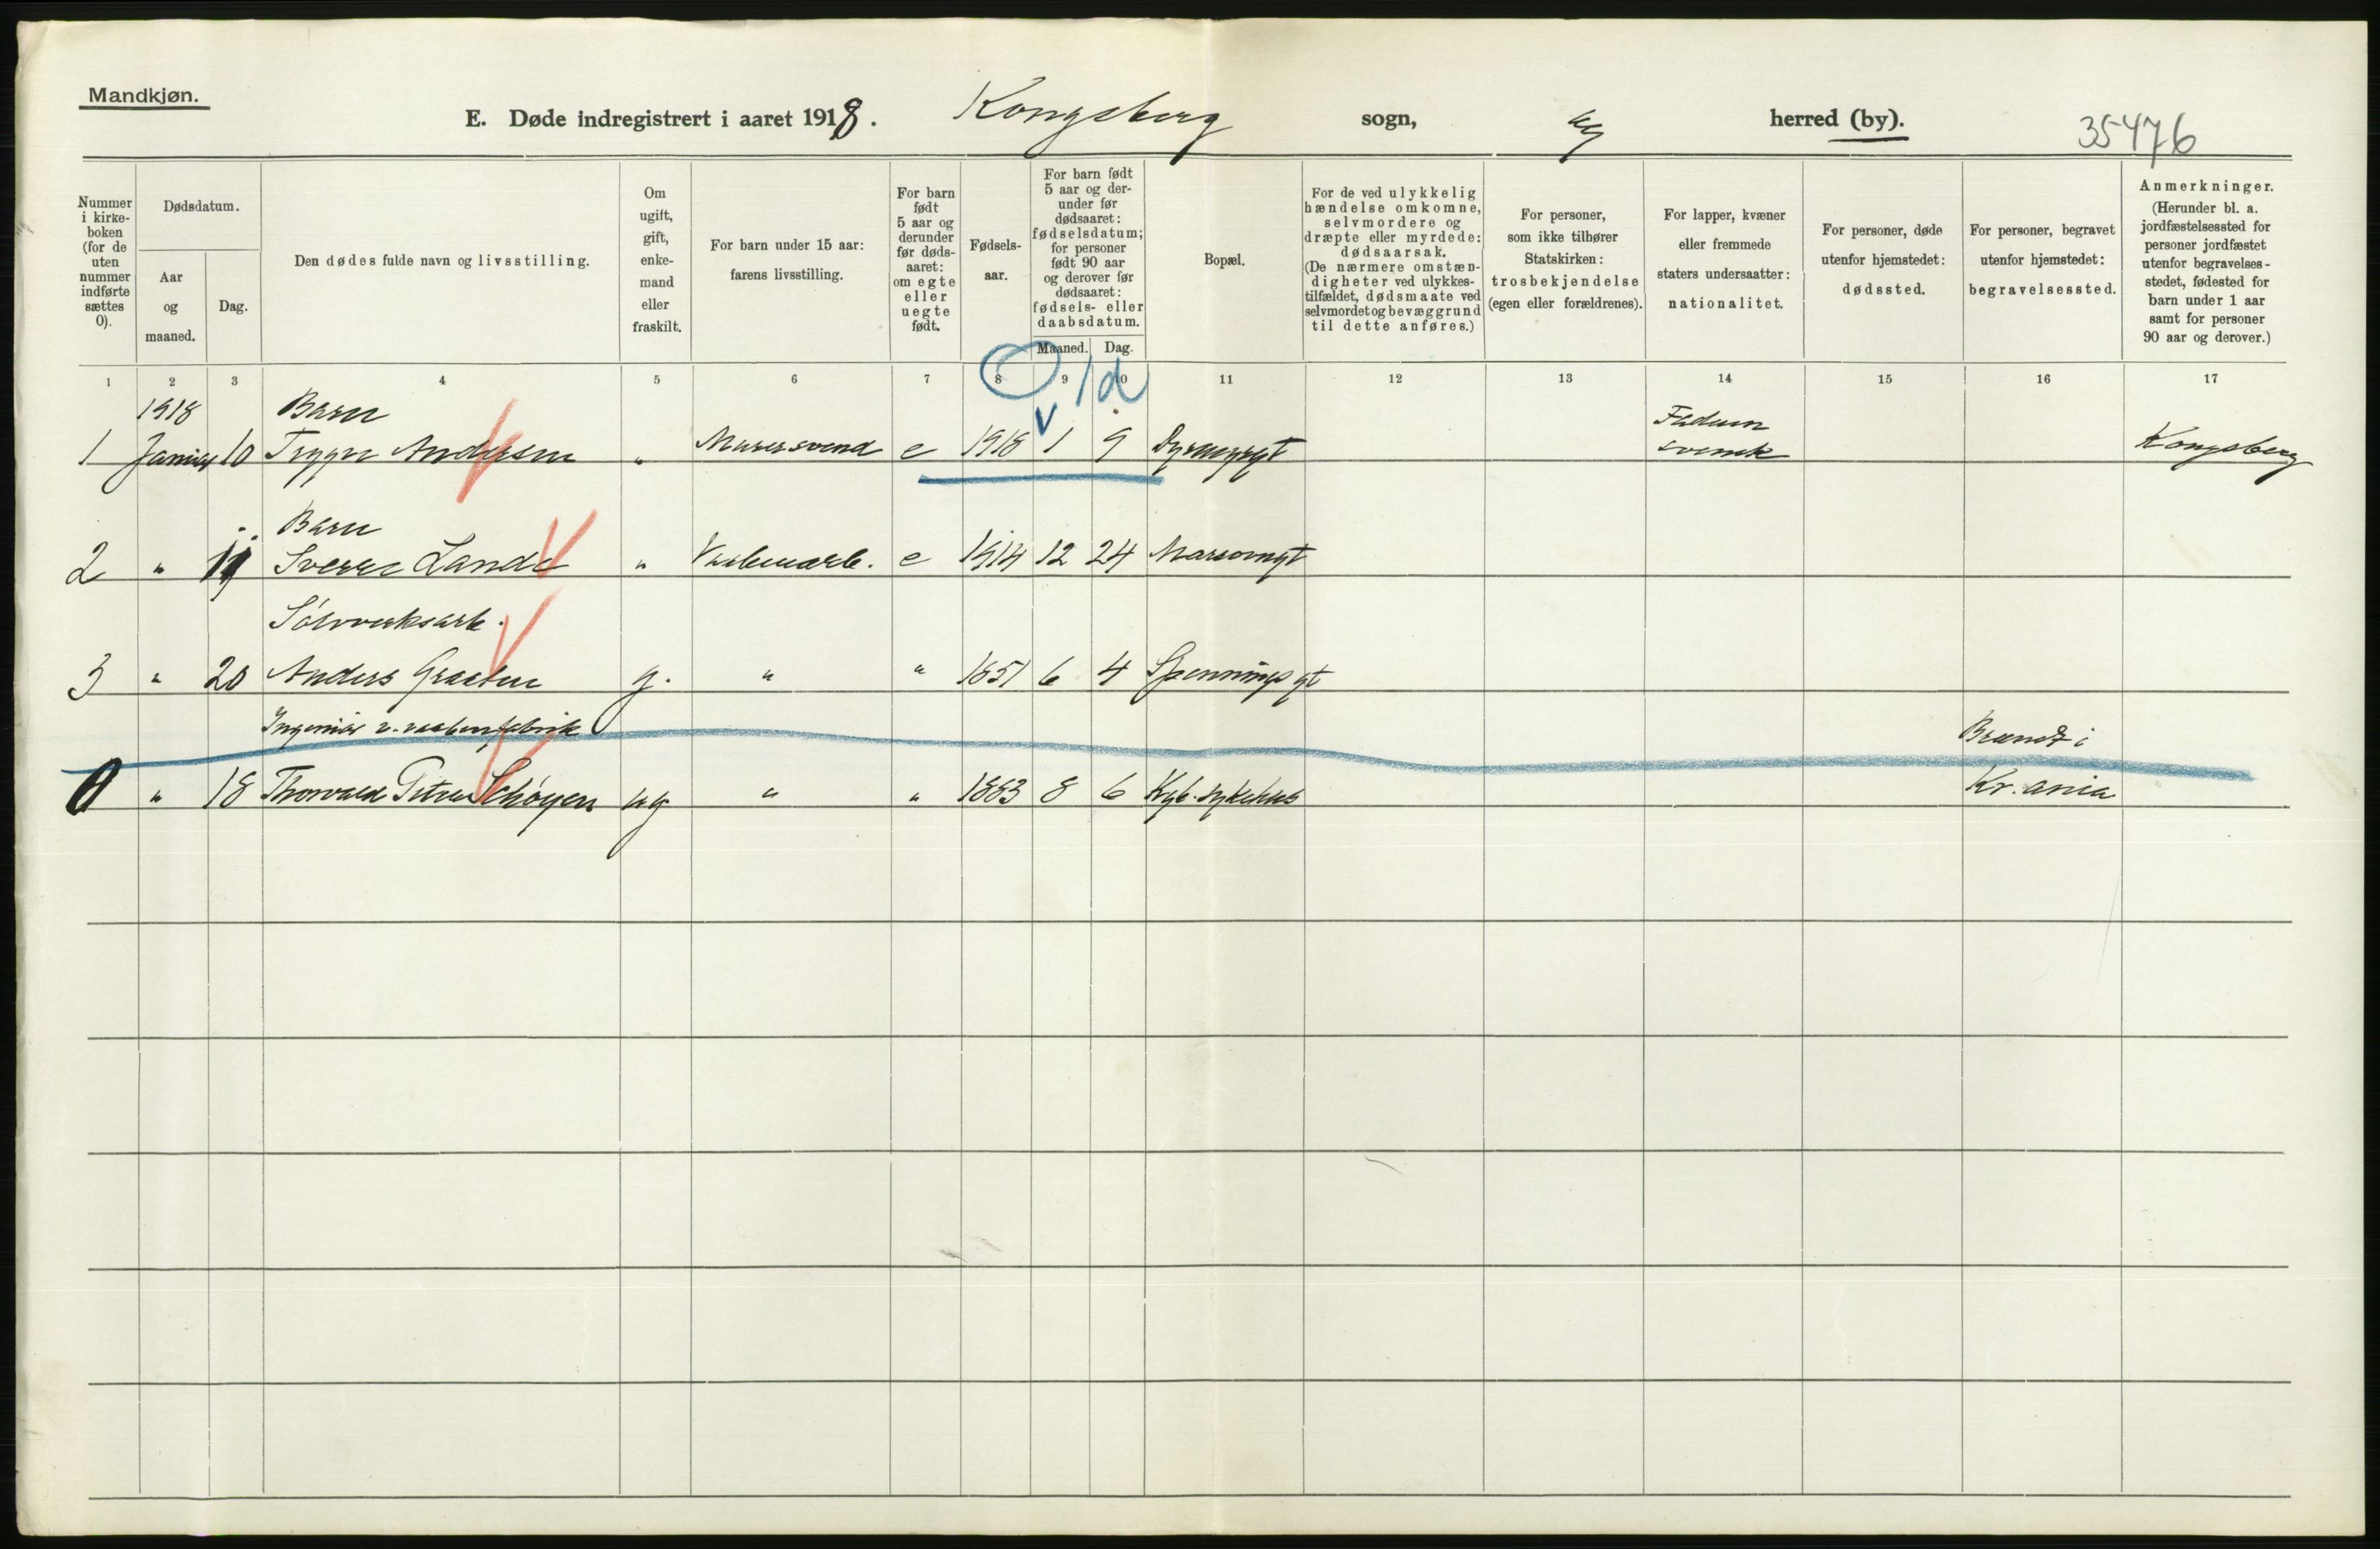 Mandkjøn.
E. Døde indregistrert i aaret 1918. Kongsberg sogn, by herred (by). 35476
Nummer i kirke-boken (for de uten nummer indførte sættes 0).
Dødsdatum.
Aar og maaned.
Dag.
Den dødes fulde navn og livsstilling.
Om ugift, gift, enke-mand eller fraskilt.
For barn under 15 aar: farens livsstilling.
For barn født 5 aar og derunder før døds-aaret: om egte eller uegte født.
Fødsels-aar.
For barn født 5 aar og der-under før dødsaaret: fødselsdatum; for personer født 90 aar og derover før dødsaaret: fødsels- eller daabsdatum.
Maaned. Dag.
Bopæl.
For de ved ulykkelig hændelse omkomne, selvmordere og dræpte eller myrdede: dødsaarsak. (De nærmere omstæn-digheter ved ulykkes-tilfældet, dødsmaate ved selvmordet og bevæggrund til dette anføres.)
For personer, som ikke tilhører Statskirken: trosbekjendelse (egen eller forældrenes).
For lapper, kvæner eller fremmede staters undersaatter: nationalitet.
For personer, døde utenfor hjemstedet: dødssted.
For personer, begravet utenfor hjemstedet: begravelsessted.
Anmerkninger. (Herunder bl. a. jordfæstelsessted for personer jordfæstet utenfor begravelses-stedet, fødested for barn under 1 aar samt for personer 90 aar og derover.)
1 2 3 4 5 6 7 8 9 10 11 12 13 14 15 16 17
1d
1918 Barn
1 Januar 10 Trygve Andersen " Murersvend e 1918 1 9 svensk Kongsberg
Barn
2 " Sverre Lande " e 1914 12 24
Sølvverksarb.
3 " 20 Anders Graaten g. " " 1851 6 4 Spenningsgt
Ingeniør v. vaabenfabrik Brændt i
0 " 18 Thorvald Petter Schøyen ug " " 1883 8 6 Kgb. sykehus Kr.ania